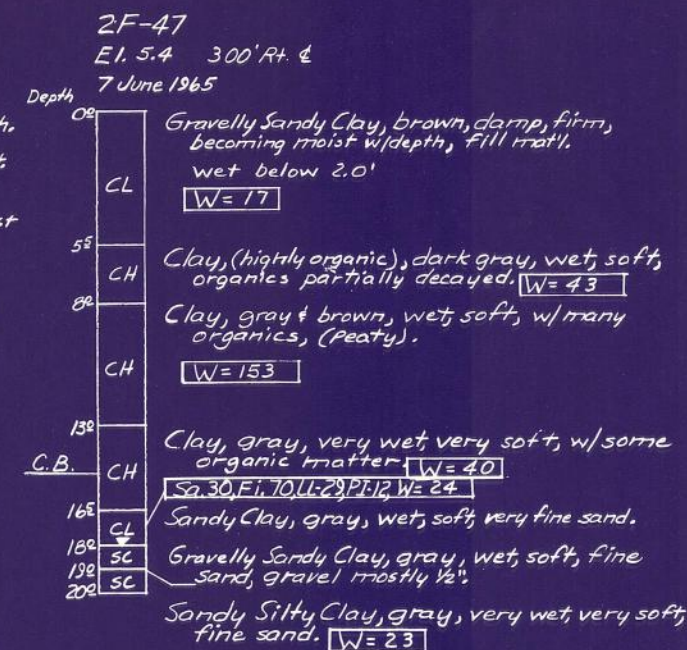 2F-47
El. 5.4 300' Rt. ℄
7 June 1965
Depth
0.0
Gravelly Sandy Clay, brown, damp, firm,
becoming moist w/depth, fill mat'l.
wet below 2.0'
CL
W=17
5.5
Clay, (highly organic), dark gray, wet, soft,
CH
organics partially decayed. W=43
8.0
Clay, gray & brown, wet, soft, w/many
organics, (peaty).
CH
W=153
13.0
Clay, gray, very wet, very soft, w/some
organic matter. W=40
C.B.
CH
Sa.30, Fi.70, LL-29, PI-12, W=24
Sandy Clay, gray, wet, soft, very fine sand.
CL
18.0
SC
Gravelly Sandy Clay, gray, wet, soft, fine
sand, gravel mostly ½".
19.0
SC
20.0
Sandy Silty Clay, gray, very wet, very soft,
fine sand. W=23